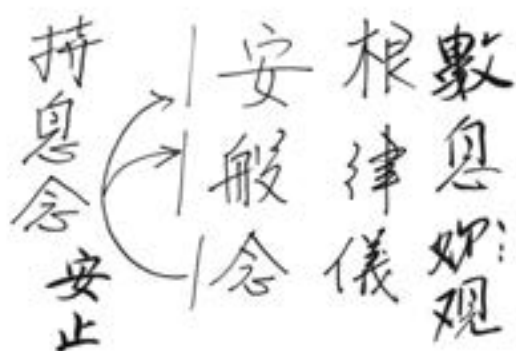 數息观
根律儀
安般念
持息念安止